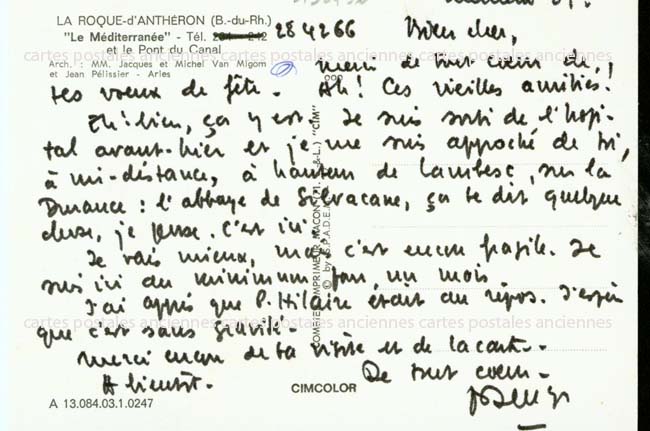 LA ROQUE-D'ANTHÉRON (B.-du-Rh.)
"Le Méditerranée" - Tél. 284266
et le Pont du Canal
Arch. : MM. Jacques et Michel Van Migom
et Jean Pélissier - Arles
Bien cher,
merci de tout cœur de
tes vœux de fête. Ah! Ces vieilles amitiés!
Eh! bien, ça y est. Je suis sorti de l'hopi-
tal avant-hier et je me suis approché de toi,
à mi-distance, à hauteur de Lambesc, sur la
Durance : l'abbaye de Silvacane, ça te dit quelque
chose, je pense. C'est ici
Je vais mieux, mais c'est encore fragile. Je
suis ici au minimum pour un mois
J'ai appris que P. Hilaire était au repos. J'espère
que c'est sans gravité.
Merci encore de ta visite et de la carte.
A bientôt. De tout cœur.
CIMCOLOR
A 13.084.03.1.0247
COMBIER IMPRIMEUR MACON (S.-&-L.) "CIM"
© by S.P.A.D.E.M.
cartes postales anciennes cartes postales anciennes cartes postales anciennes
cartes postales anciennes cartes postales anciennes cartes postales anciennes